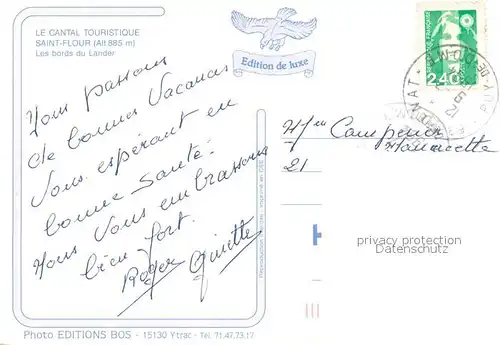 LE CANTAL TOURISTIQUE
SAINT-FLOUR (Alt.885 m)
Les bords du Lander
Edition de luxe
RÉPUBLIQUE FRANÇAISE
2,40
Nous passons
de bonnes Vacances
Vous espérant en
bonne santé.
Nous Vous embrassons
bien fort.
Roger Ginette
21
privacy protection
Datenschutz
Photo EDITIONS BOS - 15130 Ytrac - Tél. 71.47.73.17